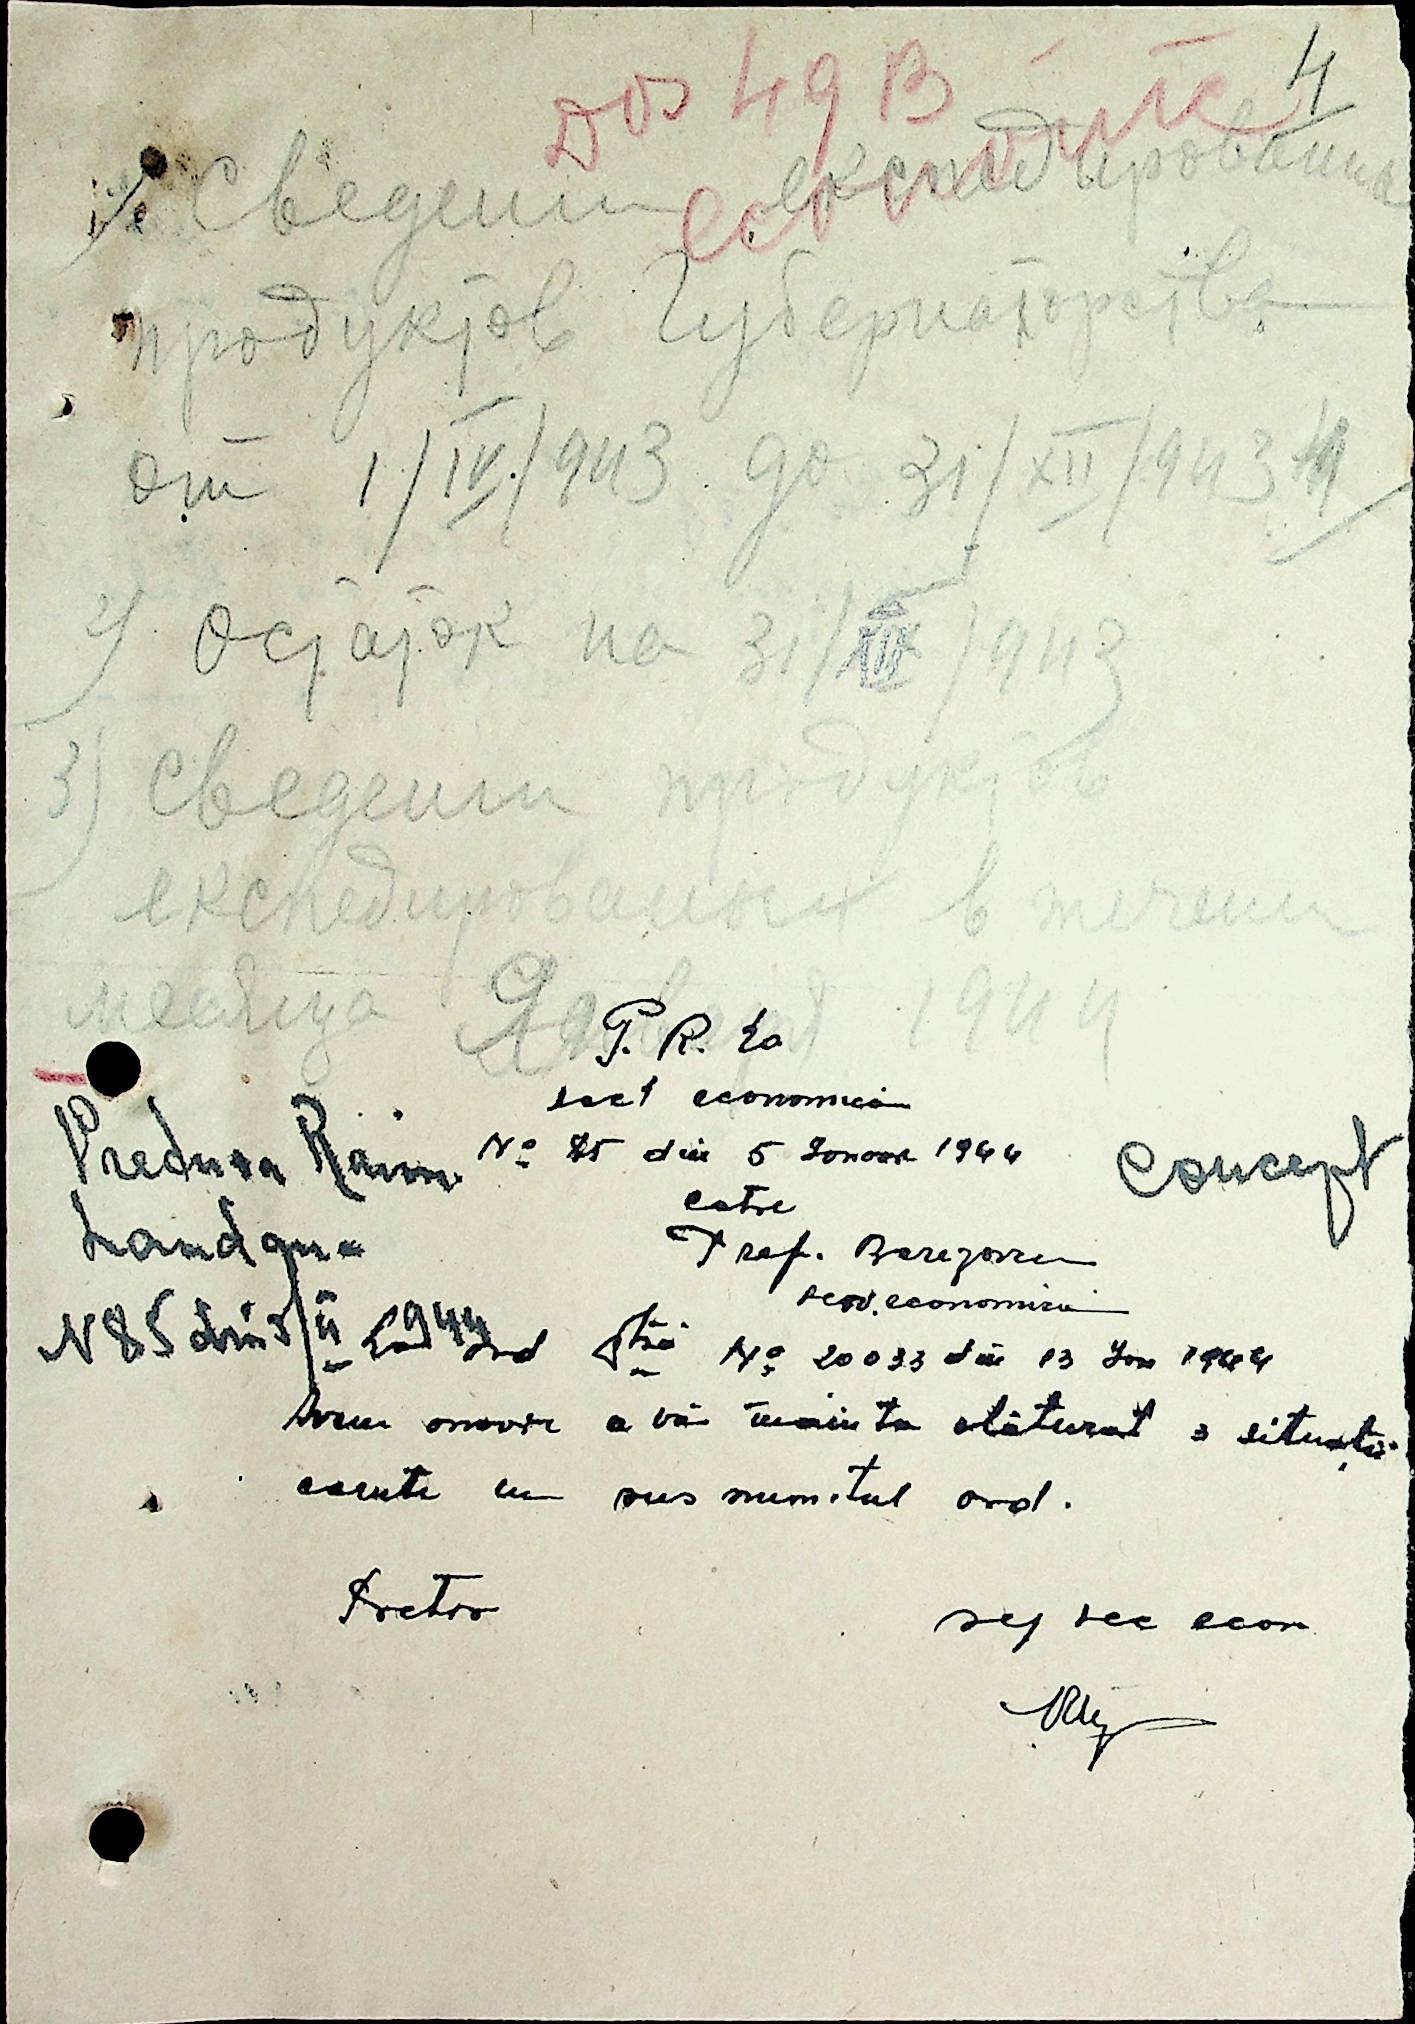 Dos 49 B
economic
4
1) Сведении експедированих
продуктов Губернаторства
от 1/IV/943 до 31/XII/943
2) Остаток на 31/XII/943
3) Сведении продуктов
експедированых в течении
месяца Январ 1944
P. R. La
sect economica
No 85 din 5 Ianuar 1944
catre
Pref. Berezovca
serv. economica
Pretura Raion
Landau
N 85 din 5/II 1944
Concept
La ord Dvs No 20033 din 13 Ian 1944
Avem onoare a vă inainta alăturat o situație
ceruta cu sus numitul ord.
Pretor
sef sec econ